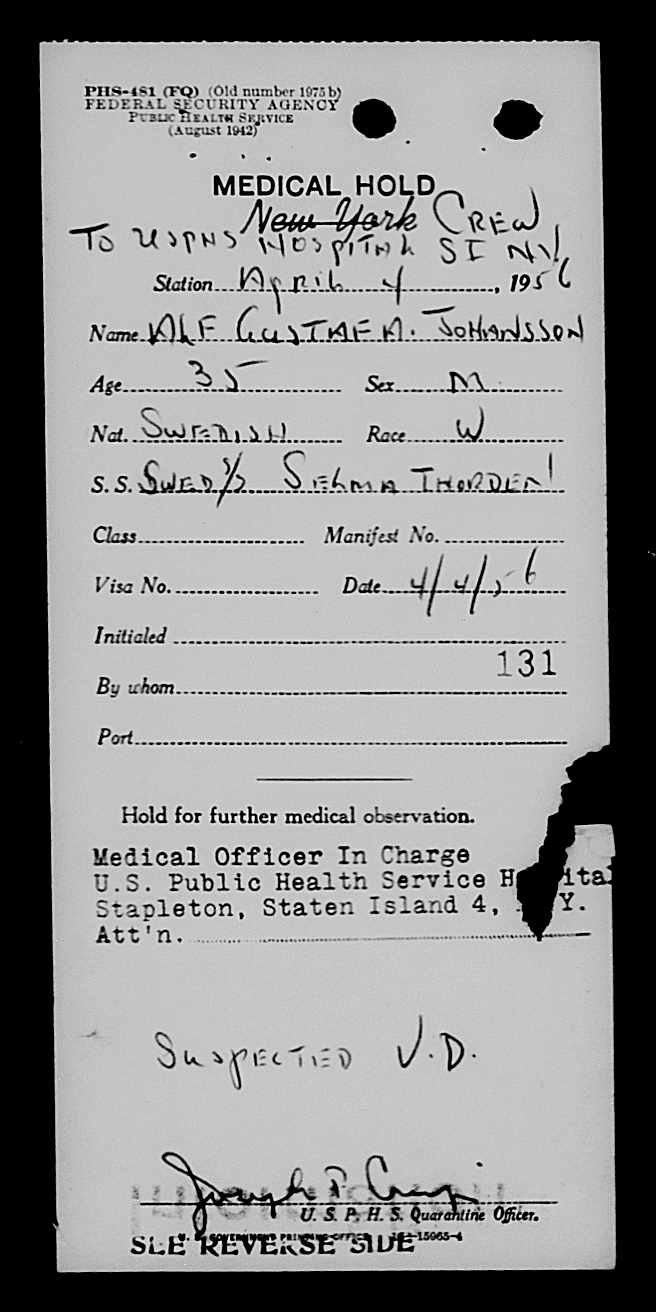 PHS-481 (FQ) (Old number 1975 b)
FEDERAL SECURITY AGENCY
PUBLIC HEALTH SERVICE
(August 1942)
MEDICAL HOLD
New York CREW
TO USPHS HOSPITAL SI NY
Station APRIL 4, 1956
Name ALF GUSTAF A. JOHANSSON
Age 35 Sex M
Nat. SWEDISH Race W
S. S. SWED S/S SELMA THORDEN
Class Manifest No.
Visa No. Date 4/4/56
Initialed
131
By whom
Port
Hold for further medical observation.
Medical Officer In Charge
U.S. Public Health Service H ital
Stapleton, Staten Island 4, Y.
Att'n.
SUSPECTED V.D.
Joseph
U. S. P. H. S. Quarantine Officer.
U. S. GOVERNMENT PRINTING OFFICE 16-15965-4
SEE REVERSE SIDE